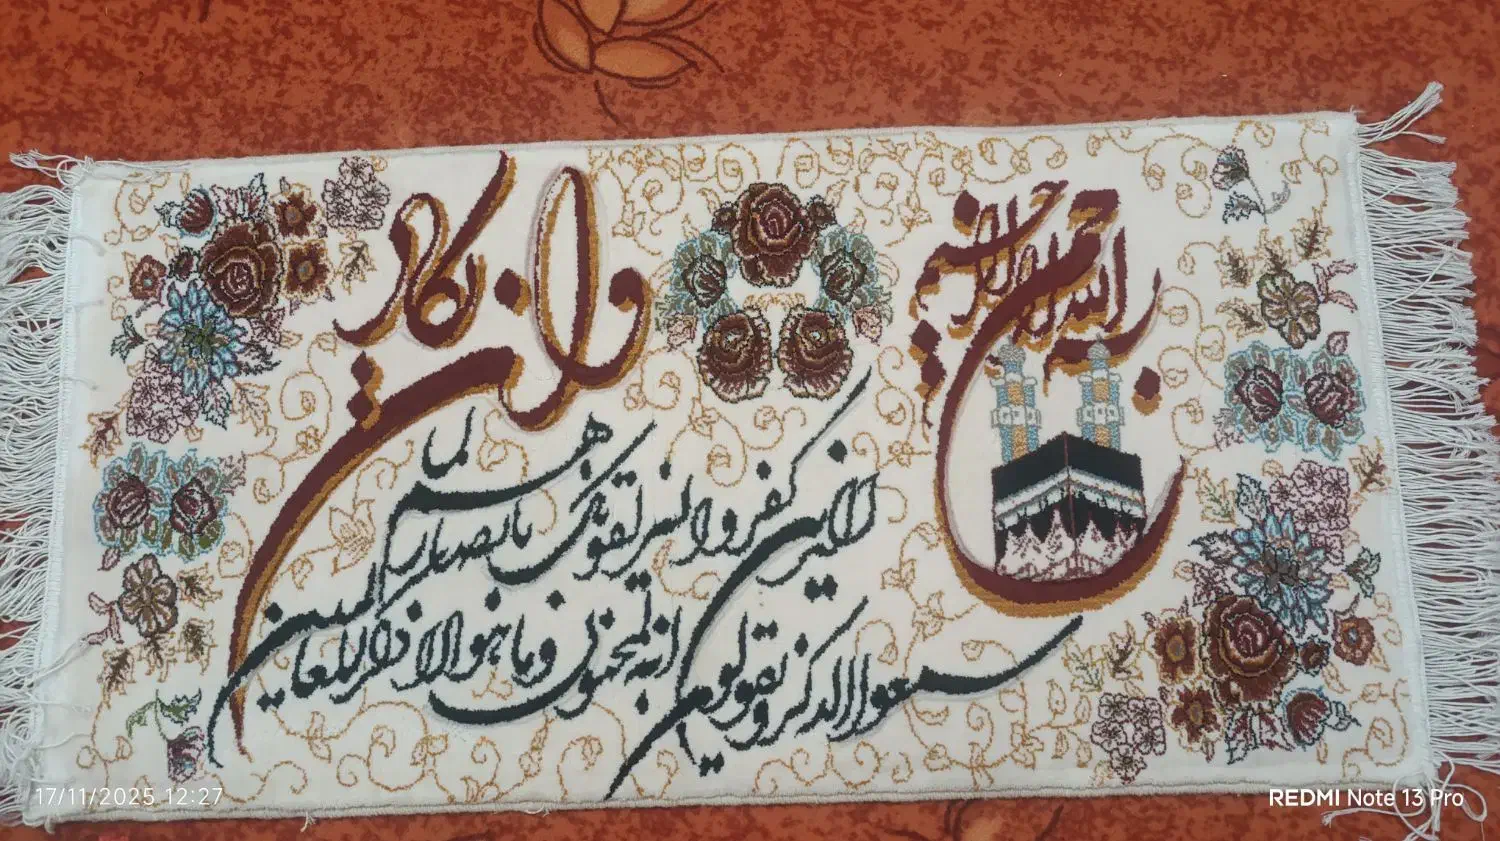 بسم الله الرحمن الرحیم
وان یکاد
الذین کفروا لیزلقونک بابصارهم لما
سمعوا الذکر و یقولون انه لمجنون وما هو الا ذکر للعالمین
17/11/2025 12:27
REDMI Note 13 Pro